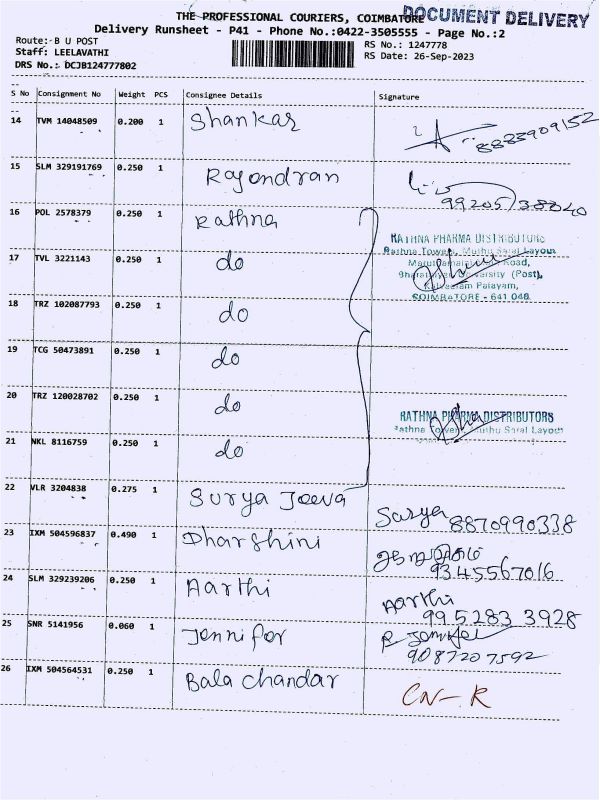 THE PROFESSIONAL COURIERS, COIMBATORE
DOCUMENT DELIVERY
Delivery Runsheet - P41 - Phone No.:0422-3505555 - Page No.:2
Route: B U POST
RS No.: 1247778
Staff: LEELAVATHI
RS Date: 26-Sep-2023
DRS No.: DCJB124777802
S No Consignment No Weight PCS Consignee Details Signature
14 TVM 14048509 0.200 1 Shankar 8883909152
15 SLM 329191769 0.250 1 Rajendran
16 POL 2578379 0.250 1 Rathna
RATHNA PHARMA DISTRIBUTORS
Rathna Tower, Muthu Saral Layout
Road,
University (Post),
Palayam,
COIMBATORE - 641 046
17 TVL 3221143 0.250 1 do
18 TRZ 102087793 0.250 1 do
19 TCG 50473891 0.250 1 do
20 TRZ 120028702 0.250 1 do
RATHNA PHARMA DISTRIBUTORS
Rathna Tower, Muthu Saral Layout
21 NKL 8116759 0.250 1 do
22 VLR 3204838 0.275 1 Surya Jeeva Surya 8870990338
23 IXM 504596837 0.490 1 Dharshini 9345567016
24 SLM 329239206 0.250 1 Aarthi Aarthi
995283 3928
25 SNR 5141956 0.060 1 Jennifer R Jennifer
9087207592
26 IXM 504564531 0.250 1 Bala chandar CN-R